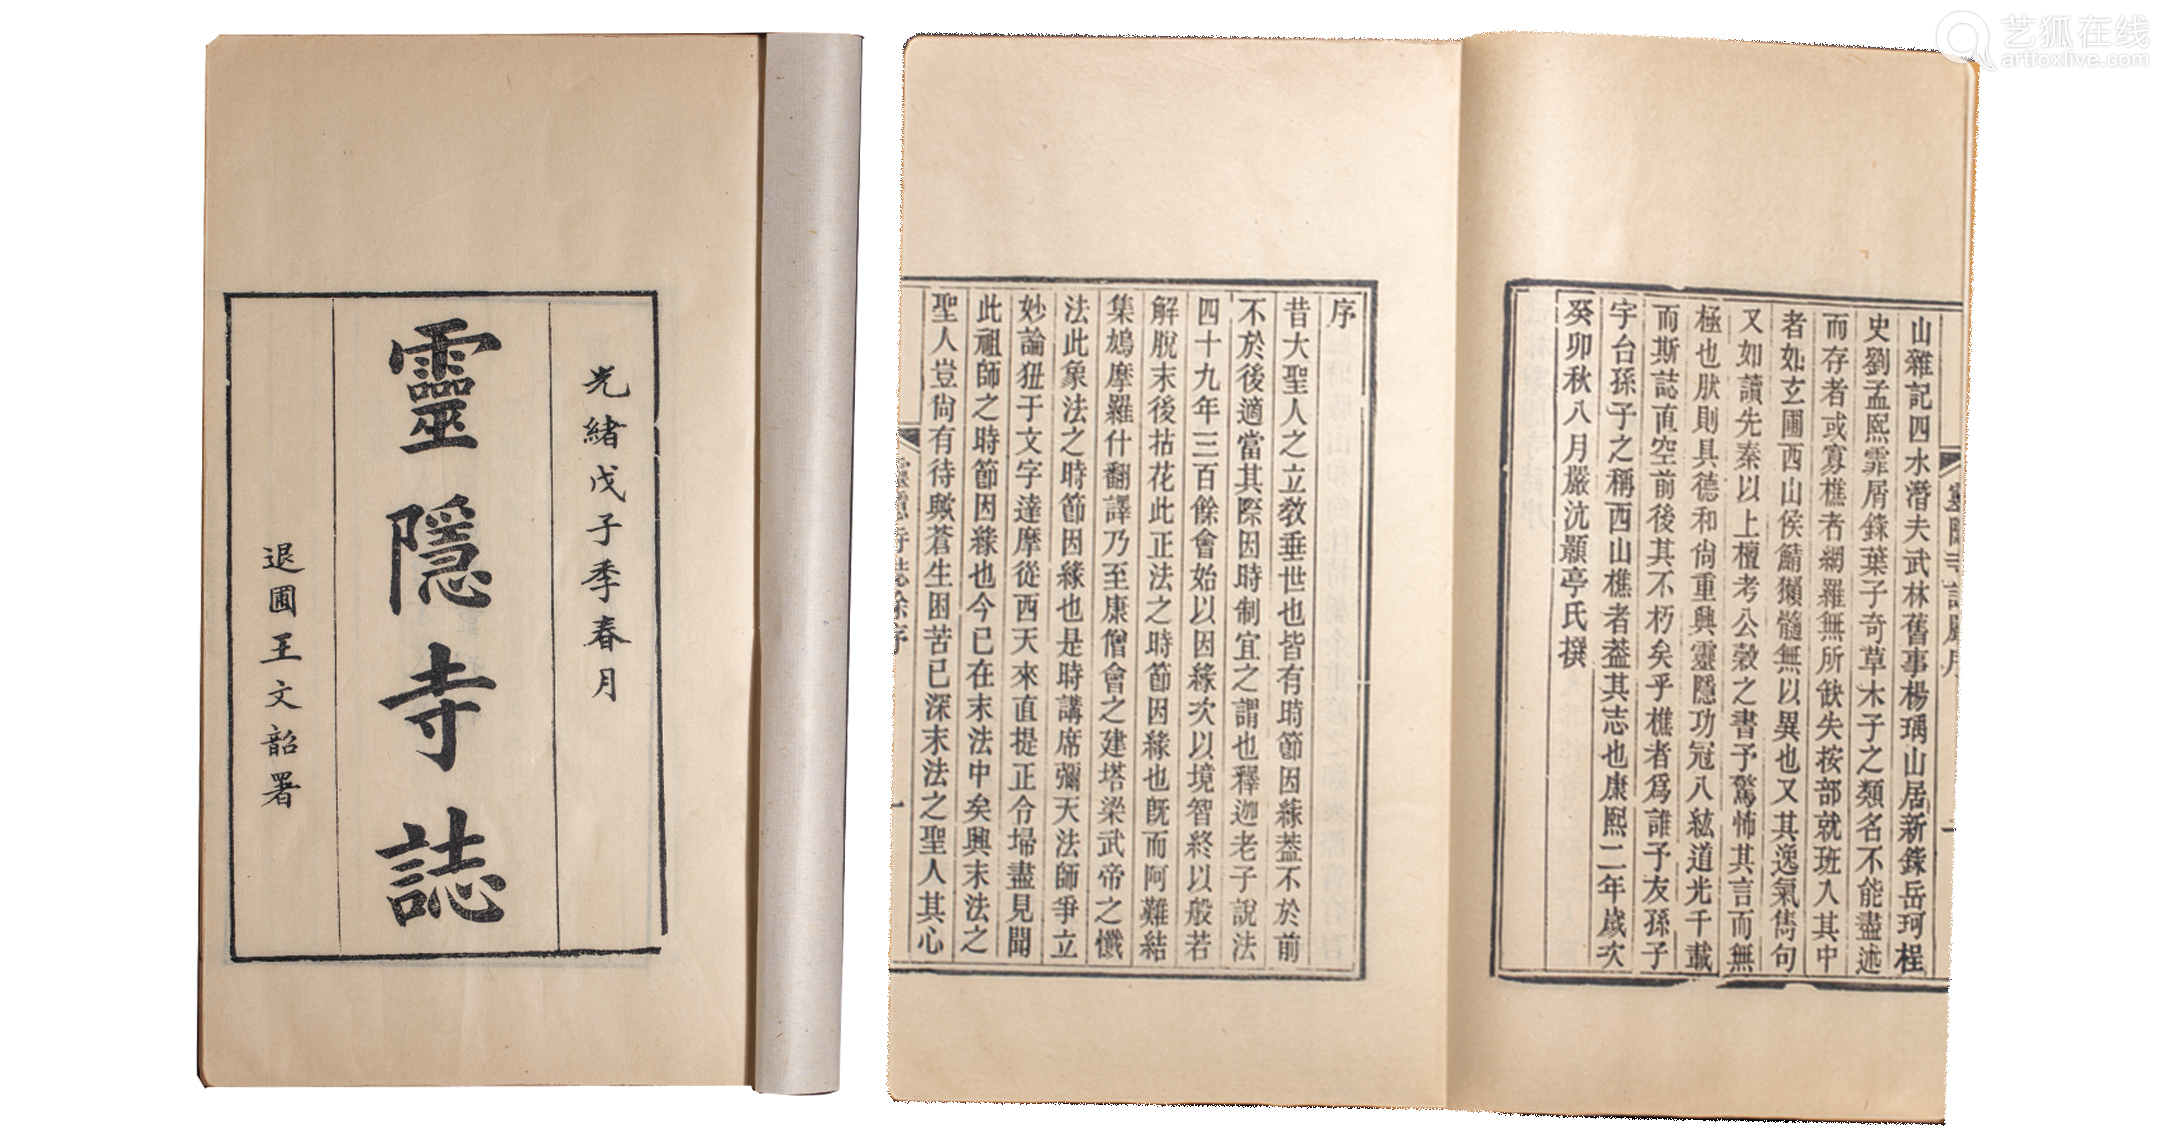 艺狐在线
artfoxlive.com
光緒戊子季春月
靈隱寺誌
退圃王文韶署
山雜記四水潛夫武林舊事楊瑀山居新錄岳珂桯
史劉孟熙霏屑錄葉子奇草木子之類名不能盡述
而存者或寡樵者網羅無所缺失按部就班入其中
者如玄圃西山侯鯖獺髓無以異也又其逸氣雋句
又如讀先秦以上檀考公穀之書予驚怖其言而無
極也肰則具德和尙重興靈隱功冠八紘道光千載
而斯誌直空前後其不朽矣乎樵者爲誰予友孫子
宇台孫子之稱西山樵者葢其志也康熙二年歲次
癸卯秋八月嚴沆顥亭氏撰
序
昔大聖人之立敎垂世也皆有時節因緣葢不於前
不於後適當其際因時制宜之謂也釋迦老子說法
四十九年三百餘會始以因緣次以境智終以般若
解脫末後拈花此正法之時節因緣也旣而阿難結
集鳩摩羅什翻譯乃至康僧會之建塔梁武帝之懺
法此象法之時節因緣也是時講席彌天法師爭立
妙論狃于文字達摩從西天來直提正令埽盡見聞
此祖師之時節因緣也今已在末法中矣興末法之
聖人豈尙有待歟蒼生困苦已深末法之聖人其心